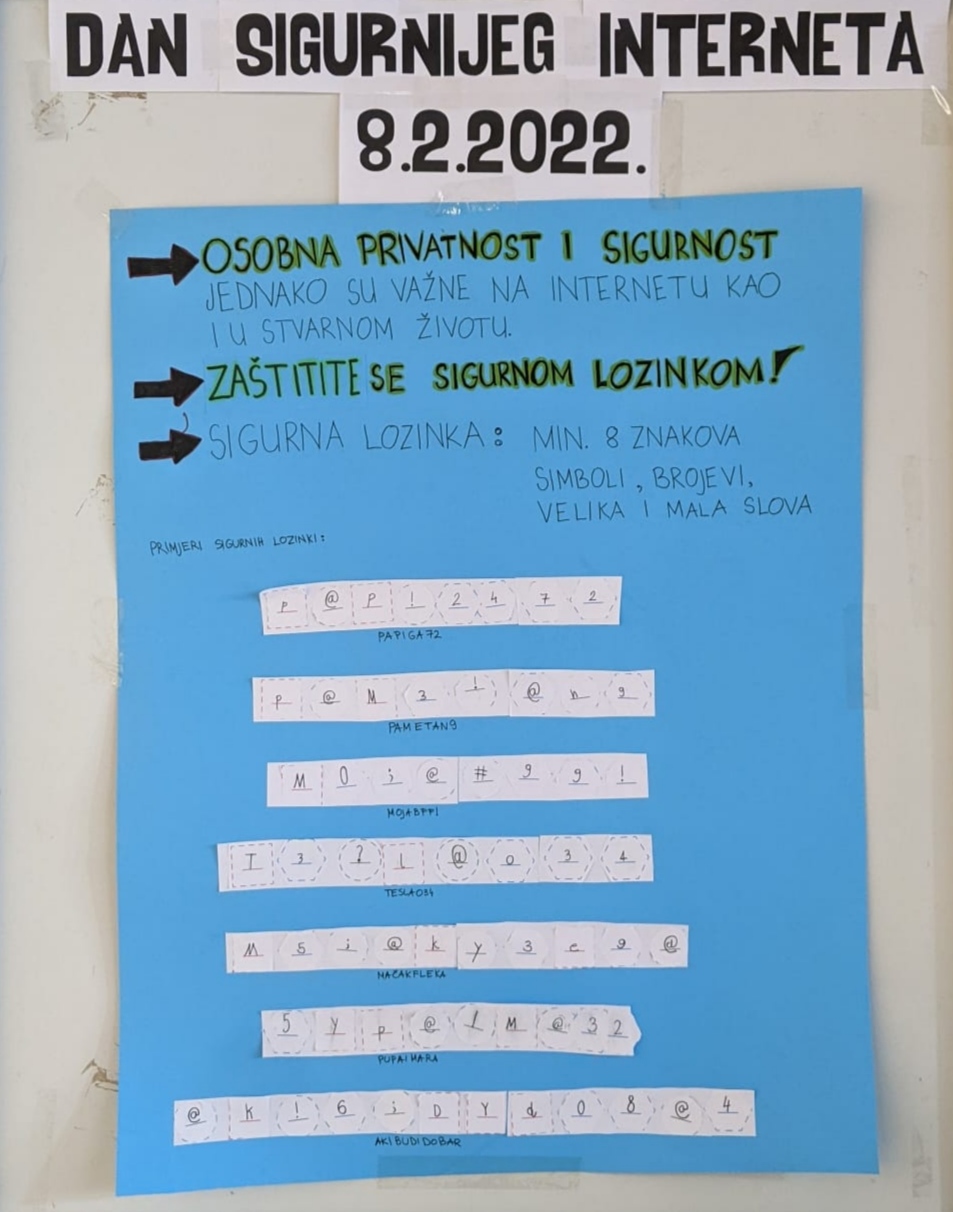 DAN SIGURNIJEG INTERNETA
8.2.2022.
OSOBNA PRIVATNOST I SIGURNOST
JEDNAKO SU VAŽNE NA INTERNETU KAO
I U STVARNOM ŽIVOTU.
ZAŠTITITE SE SIGURNOM LOZINKOM!
SIGURNA LOZINKA: MIN. 8 ZNAKOVA
SIMBOLI, BROJEVI,
VELIKA I MALA SLOVA
PRIMJERI SIGURNIH LOZINKI:
P @ P ! 2 4 7 2
PAPIGA72
P @ M 3 ! @ n 9
PAMETAN9
M 0 ; @ # 9 9 !
T 3 ? L @ 0 3 4
TESLA034
M 5 i @ k y 3 e 9 @
MACAKFLEKA
5 Y P @ ! M @ 3 2
PUPAIMARA
@ K ! 6 ; D Y d 0 8 @ 4
AKIBUDIDOBAR